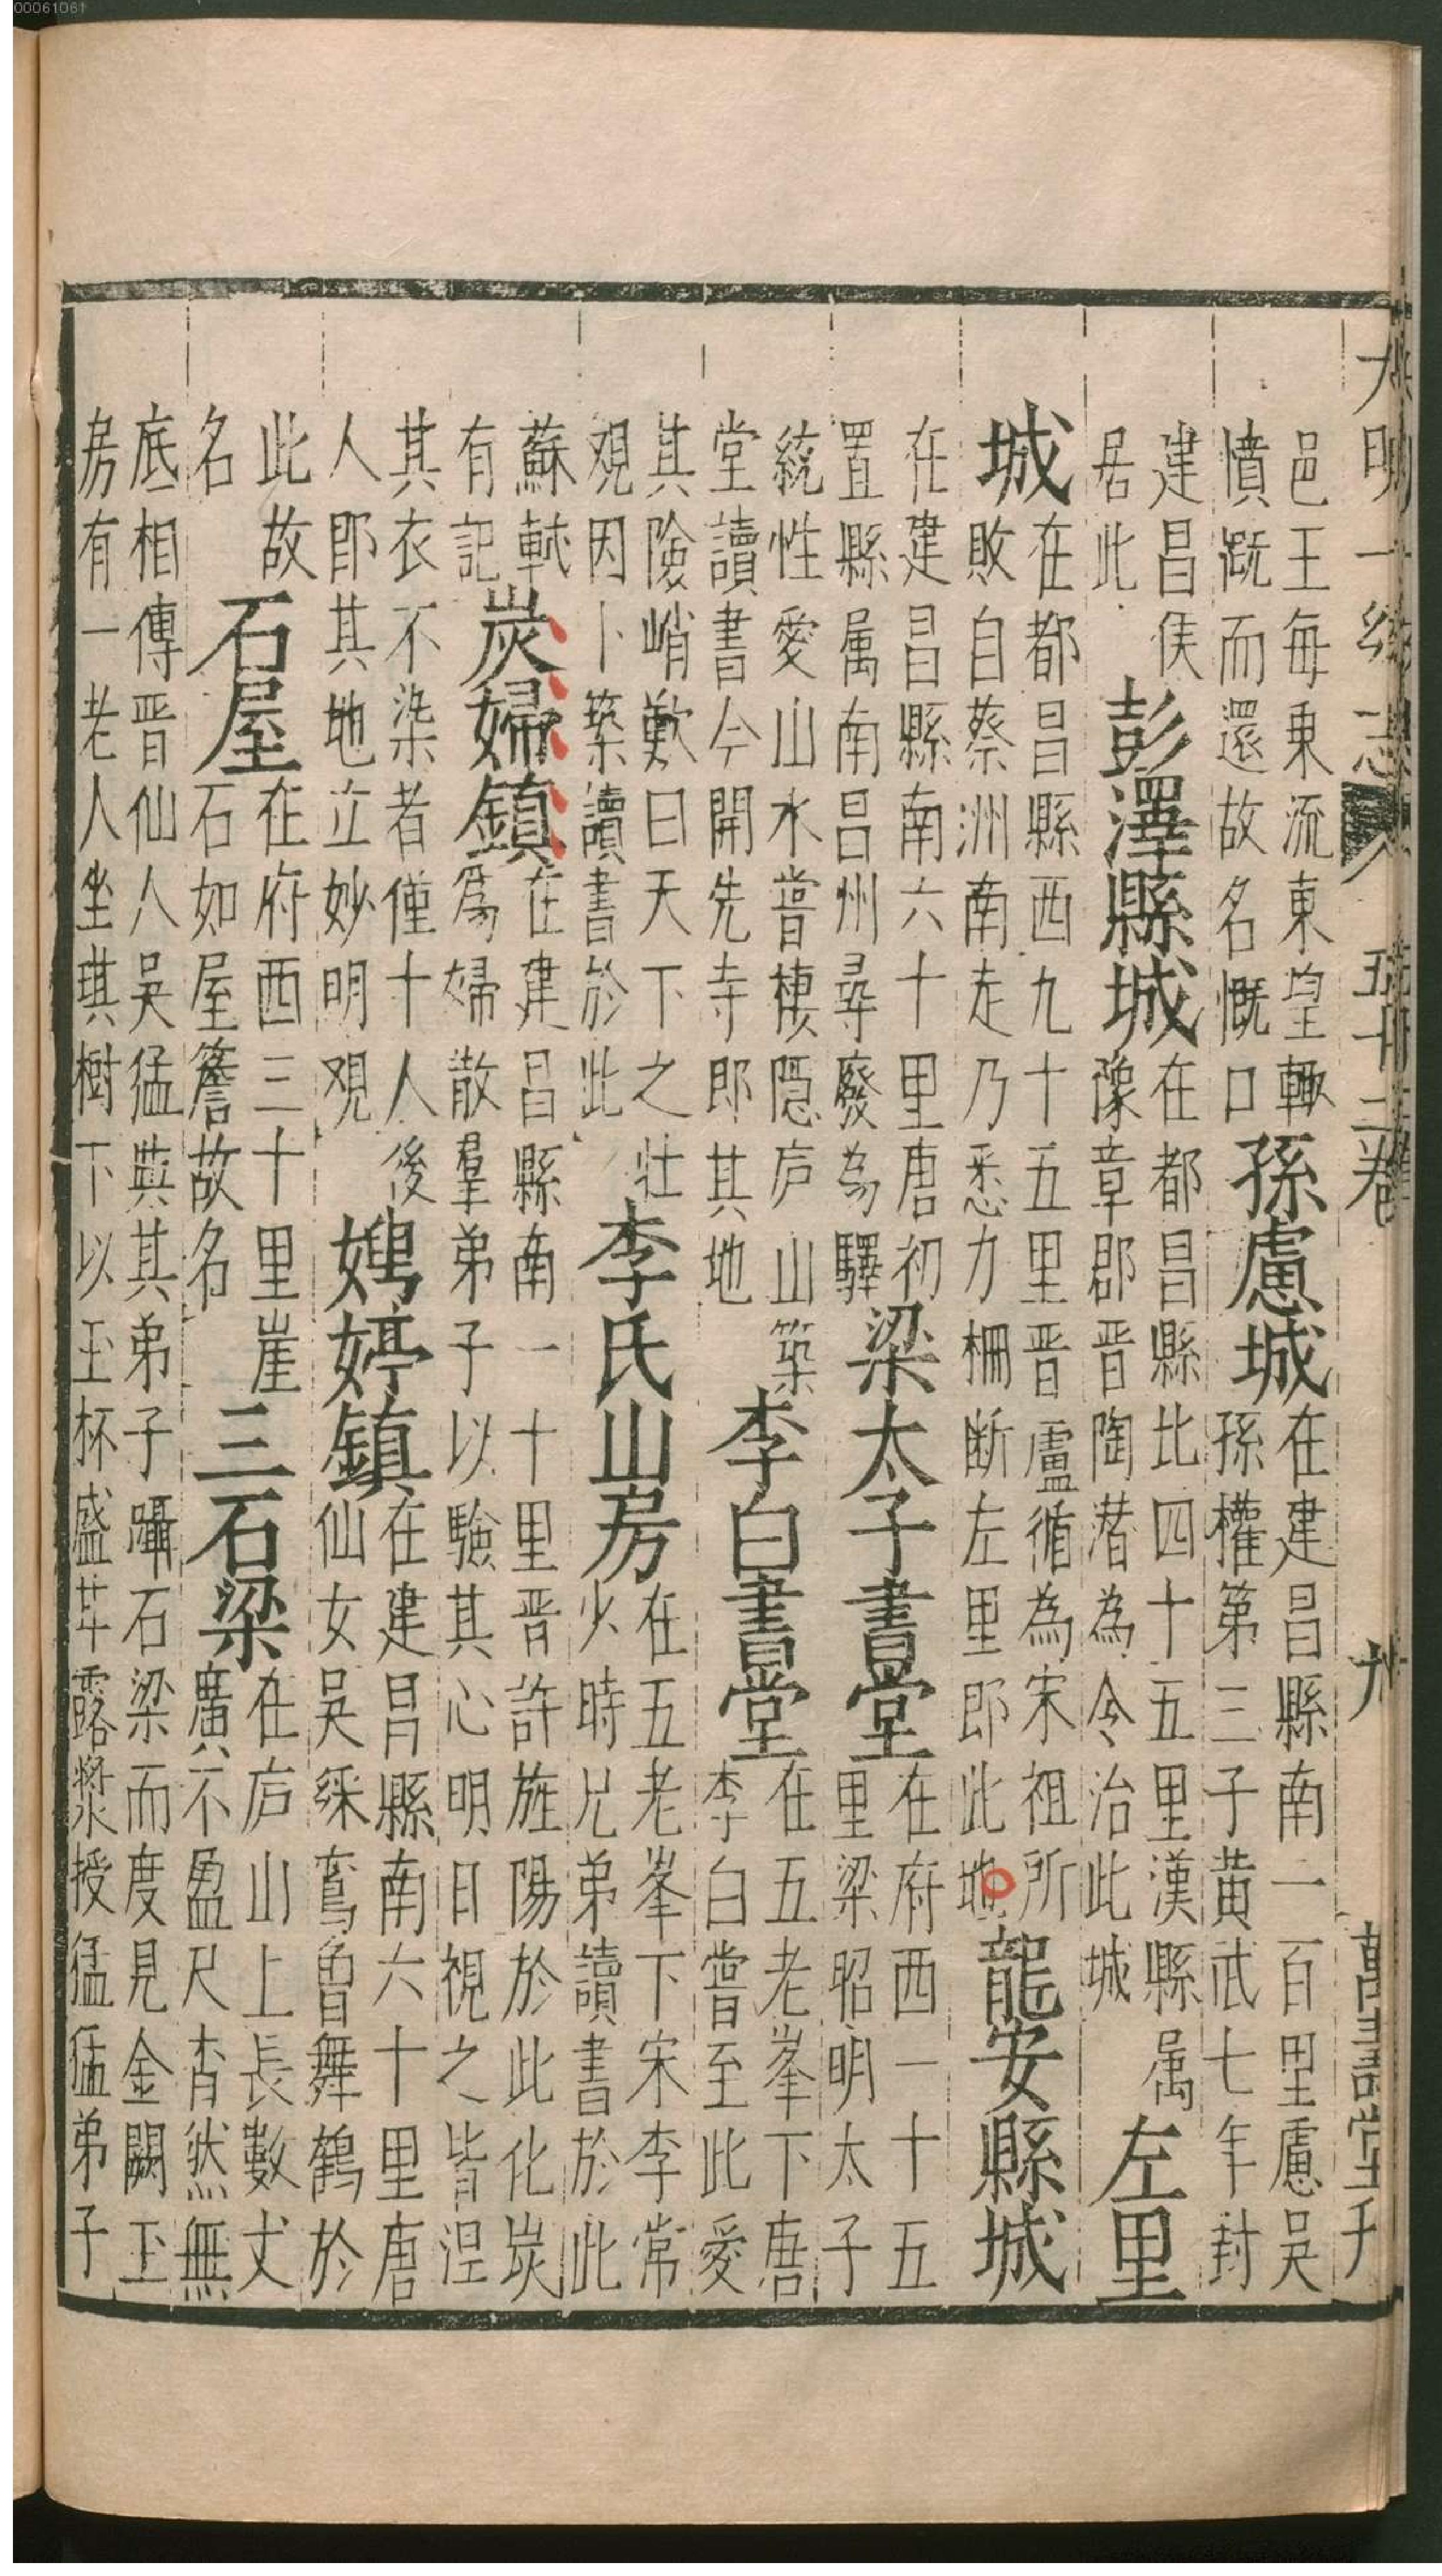 大明一統志 五十二卷 九 萬壽堂刊
邑王每東流東望輙
憤慨而還故名慨口
孫慮城
在建昌縣南一百里慮吳
孫權第三子黃武七年封
建昌侯
居此
彭澤縣城
在都昌縣北四十五里漢縣属
豫章郡晉陶潜為令治此城
左里
城
在都昌縣西九十五里晉盧循為宋祖所
敗自蔡洲南走乃悉力柵断左里即此地
龍安縣城
在建昌縣南六十里唐初
置縣属南昌州尋廢為驛
梁太子書堂
在府西一十五
里梁昭明太子
統性愛山水嘗棲隱庐山築
堂讀書今開先寺即其地
李白書堂
在五老峯下唐
李白嘗至此愛
其險峭歎曰天下之壮
观因卜築讀書於此
李氏山房
在五老峯下宋李常
少時兄弟讀書於此
蘇軾
有記
炭婦鎮
在建昌縣南一十里晉許旌陽於此化炭
為婦散羣弟子以驗其心明日視之皆涅
其衣不染者僅十人後
人即其地立妙明观
娉婷鎮
在建昌縣南六十里唐
仙女吳綵鸞曾舞鶴於
此故
名
石屋
在府西三十里崖
石如屋簷故名
三石梁
在庐山上長數丈
廣不盈尺杳然無
底相傳晋仙人吳猛與其弟子躡石梁而度見金闕玉
房有一老人坐琪樹下以玉杯盛甘露漿授猛猛弟子
00061061